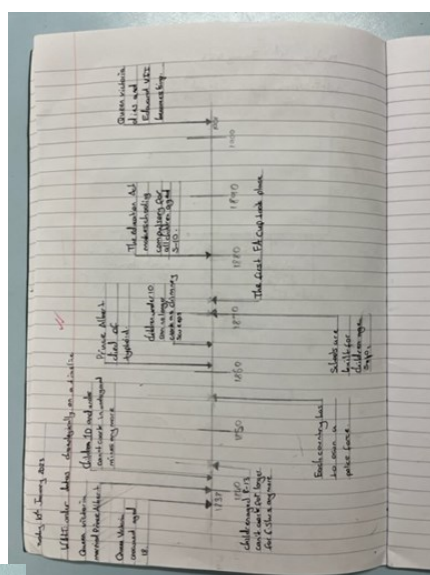 January 2023
WALT: order dates chronologically on a timeline
Queen Victoria
married Prince Albert
Queen Victoria
crowned aged
18.
Children 10 and under
can't work in underground
mines anymore
Prince Albert
died of
typhoid
Children under 10
can no longer
work as chimney
sweeps
The education Act
makes schooling
compulsory for
all children aged
5-10.
Queen Victoria
dies and
Edward VII
becomes king.
1837
1840
1850
1860
1870
1880
1890
1900
1901
children aged 9-13
can't work for longer
any more
Each country has
to own a
police force
Schools are
built for
children age
The first FA cup took place